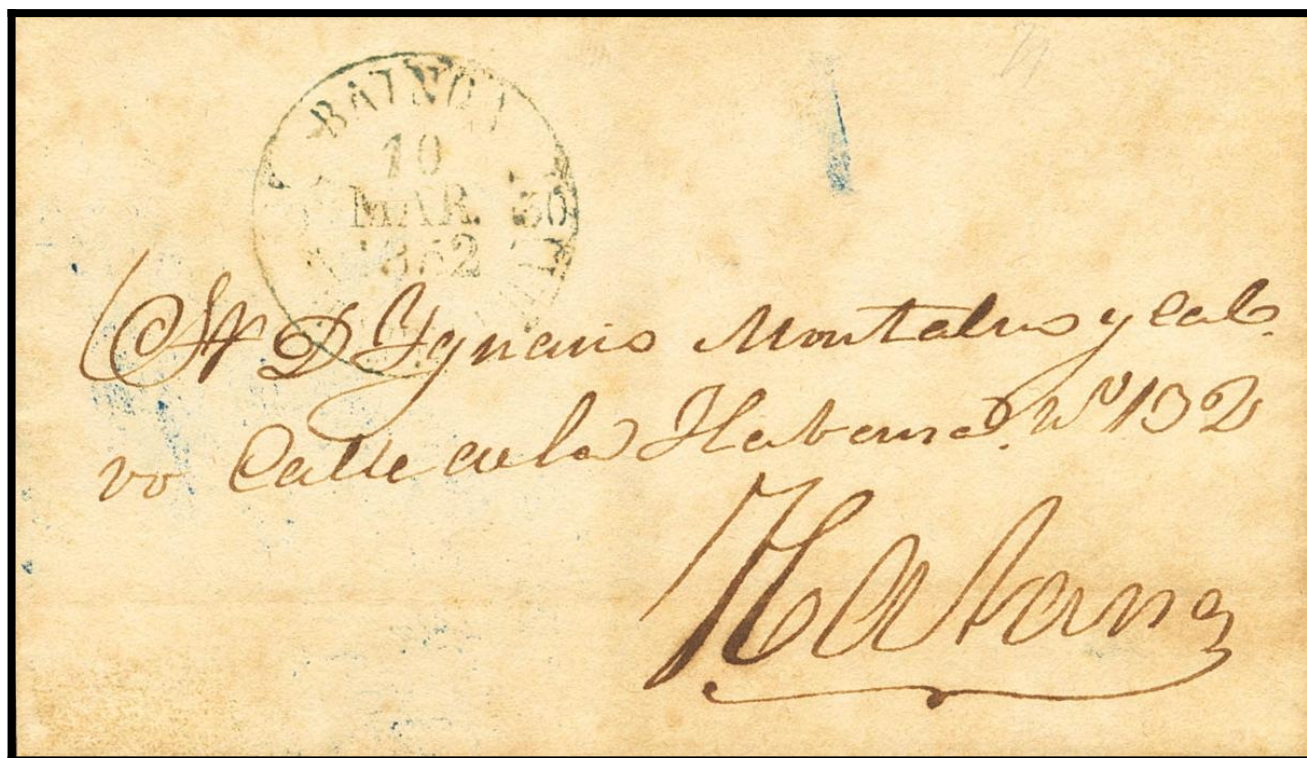 BAINOA
10
MAR. 30
1852
Sr D Ygnacio Montalvo y Cal
vo Calle de la Habana. Nº 132
Habana